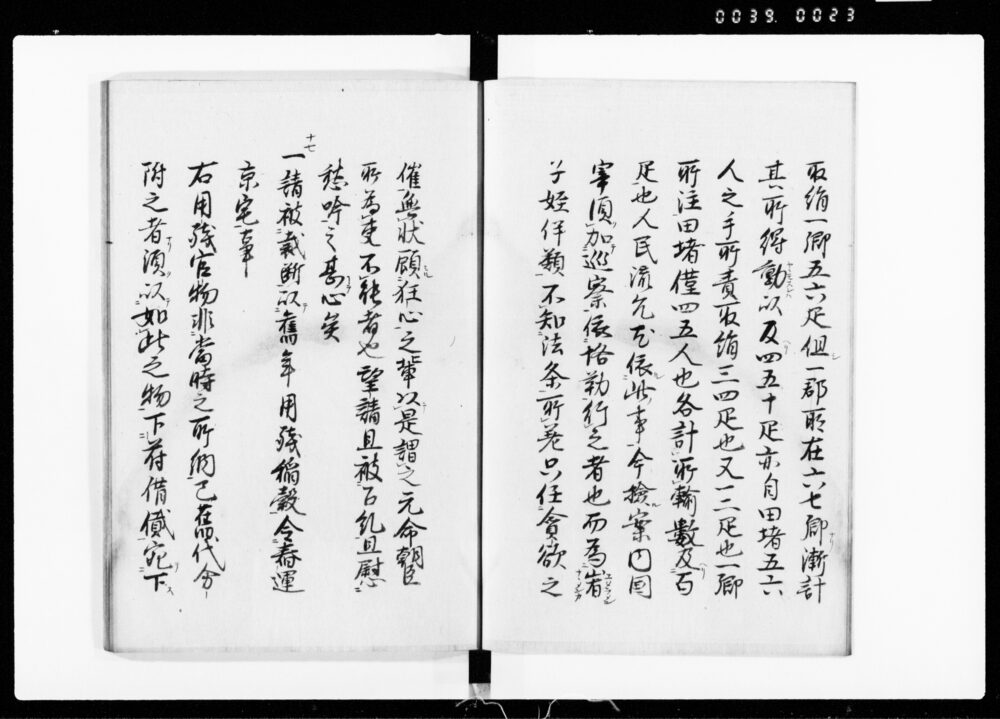 0039. 0023
取絹一郷五六疋但一郡所在六七郷漸計
其所得動以及四五十疋亦自田堵五六
人之手所責取絹三四疋也又一二疋也一郷
所注田堵僅四五人也各計所輸數及百
疋也人民流允尤依此事今撿案内国
宰須加巡察依恪勤行之者也而為
子姪伴類不知法条所差只任貪欲之
催無状顧狂心之輩以是謂之元命朝臣
所為更不能者也望請且被召糺且慰
愁吟之甚心矣
十七
一請被裁断以舊年用残稲穀令舂運
京宅事
右用残官物非當時之所納已舊代分
附之者須以如此之物下符借儎宛下